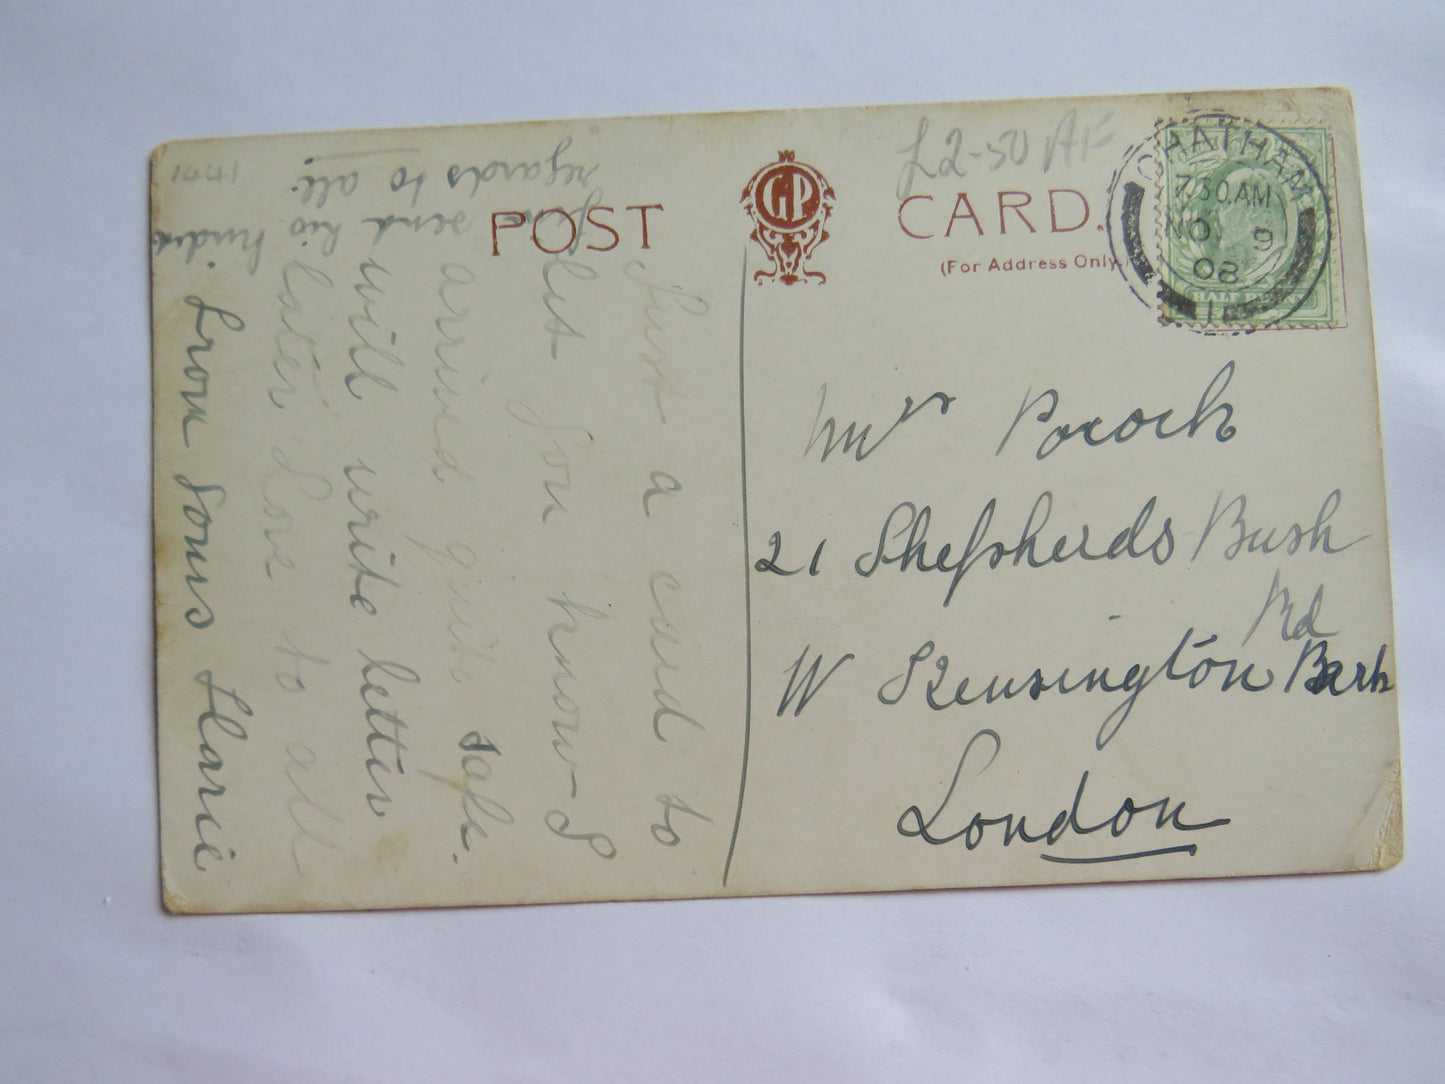 POST CARD.
GP
(For Address Only.)
£2-50
CHATHAM
7.30AM
NO 9
08
HALF PENNY
Mrs Pocock
21 Shepherds Bush
Rd
W Kensington Park
London
Just a card to
let you know I
arrived quite safe.
will write letter
later Love to all
From Yours Harrie
send his kind
regards to all.